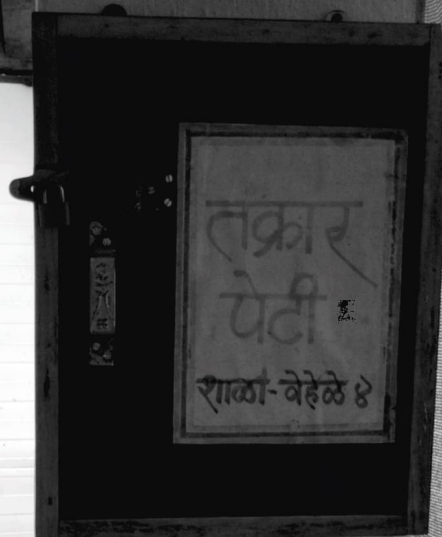 तक्रार
पेटी
शाळा-वेहेळे ४